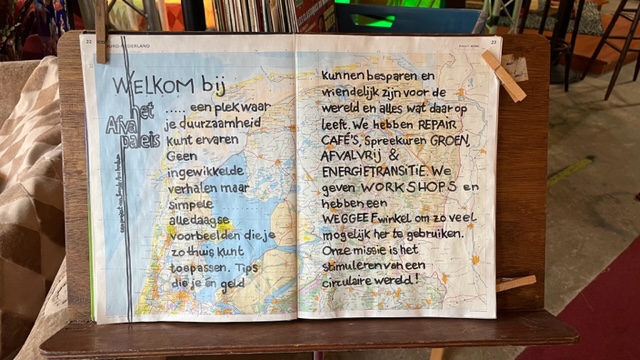 22
NOORD-NEDERLAND
WELKOM bij
het
Afval
paleis
..... een plek waar
je duurzaamheid
kunt ervaren
Geen
ingewikkelde
verhalen maar
simpele
alledaagse
voorbeelden die je
zo thuis kunt
toepassen. Tips
die je én geld
23
kunnen besparen en
vriendelijk zijn voor de
wereld en alles wat daar op
leeft. We hebben REPAIR
CAFÉ'S, Spreekuren GROEN,
AFVALVRIJ &
ENERGIETRANSITIE. We
geven WORKSHOPS en
hebben een
WEGGEEFwinkel om zo veel
mogelijk her te gebruiken.
Onze missie is het
stimuleren van een
circulaire wereld!